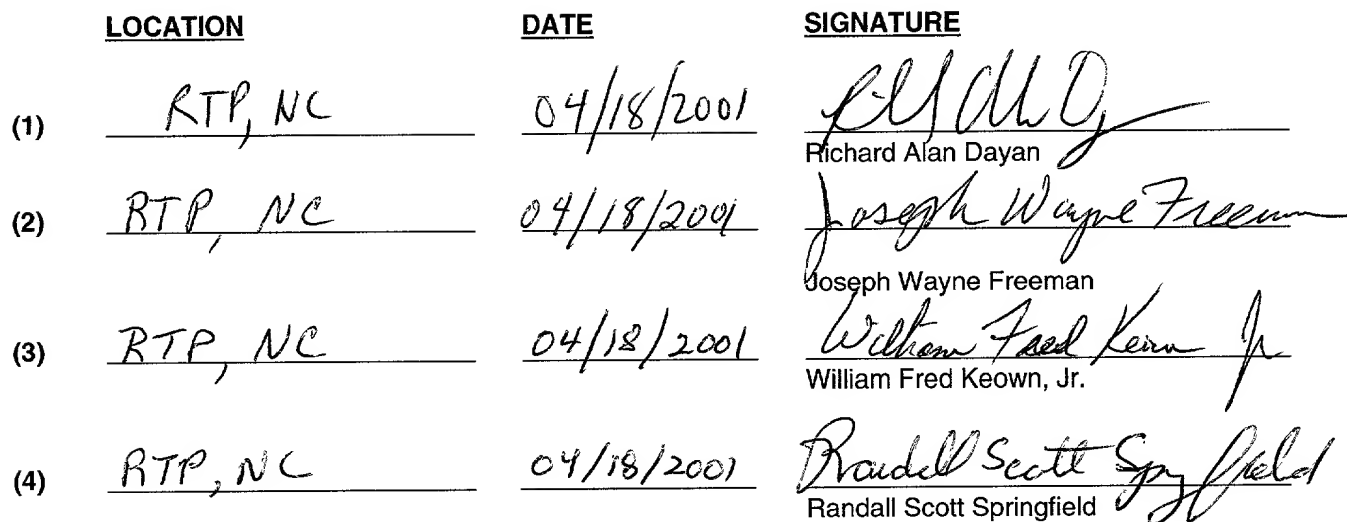 LOCATION DATE SIGNATURE
(1) RTP, NC 04/18/2001
Richard Alan Dayan
(2) RTP, NC 04/18/2001 Joseph Wayne Freeman
Joseph Wayne Freeman
(3) RTP, NC 04/18/2001 William Fred Keown Jr
William Fred Keown, Jr.
(4) RTP, NC 04/18/2001 Randall Scott Springfield
Randall Scott Springfield